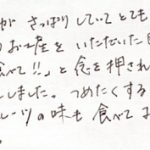 が さっぱりしていて とても
お土産を いただいた
食べて!!」と 念を押され
しました。つめたくする
ルーツの味も 食べて
。